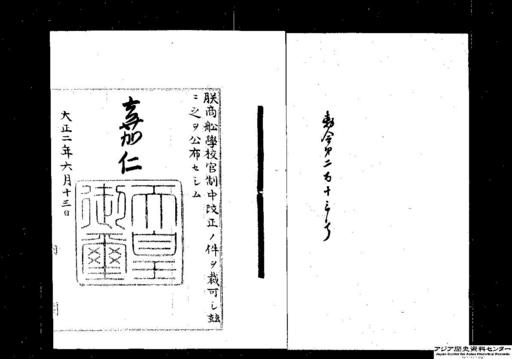 勅令第二百十三号
朕商舩學校官制中改正ノ件ヲ裁可シ玆
ニ之ヲ公布セシム
嘉仁
天皇
御璽
大正二年六月十三日
アジア歴史資料センター
Japan Center for Asian Historical Records